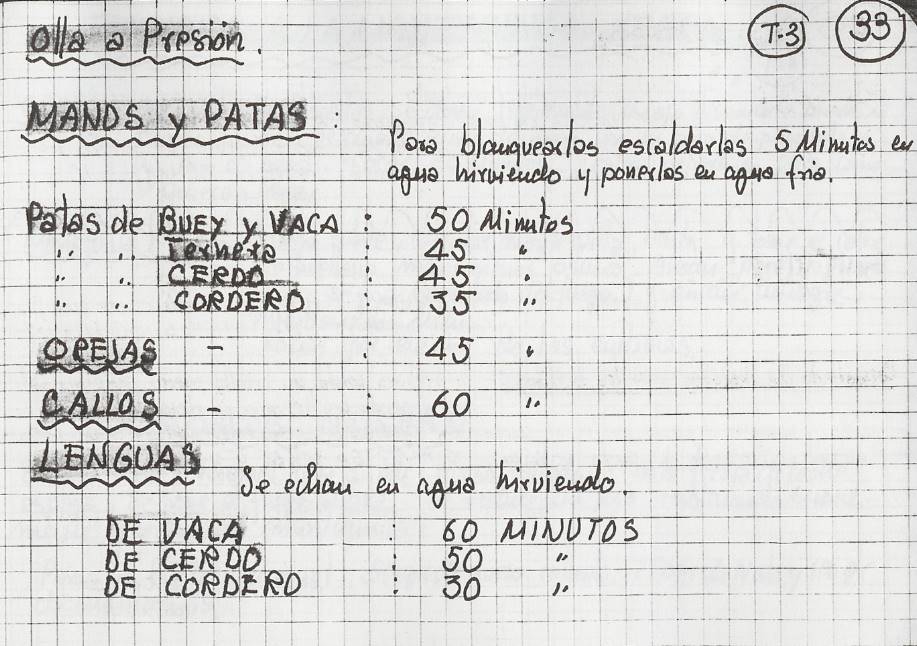 Olla a Presión. T-3 33
MANOS y PATAS :
Para blanquearlas escaldarlas 5 Minutos en
agua hirviendo y ponerlas en agua fria.
Patas de BUEY y VACA : 50 Minutos
" " Ternera : 45 "
" " CERDO : 45 "
" " CORDERO : 35 "
OREJAS - : 45 "
CALLOS - : 60 "
LENGUAS
Se echan en agua hirviendo.
DE VACA : 60 MINUTOS
DE CERDO : 50 "
DE CORDERO : 30 "